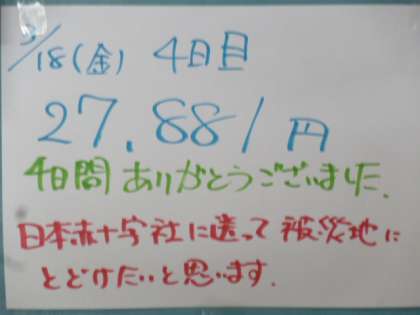 3/18(金) 4日目
27,881円
4日間ありがとうございました.
日本赤十字社に送って被災地に
とどけたいと思います.